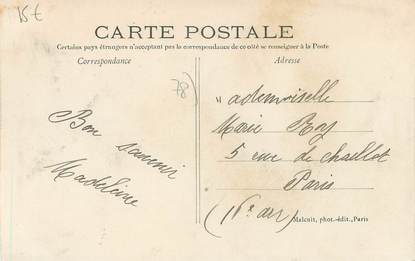 15€
CARTE POSTALE
Certains pays étrangers n'acceptant pas la correspondance de ce côté se renseigner à la Poste
Correspondance
Adresse
78)
Bon souvenir
Madeleine
ademoiselle
Marie Roy
5 rue de Chaillot
Paris
(16e arr)
Malcuit, phot.-édit., Paris